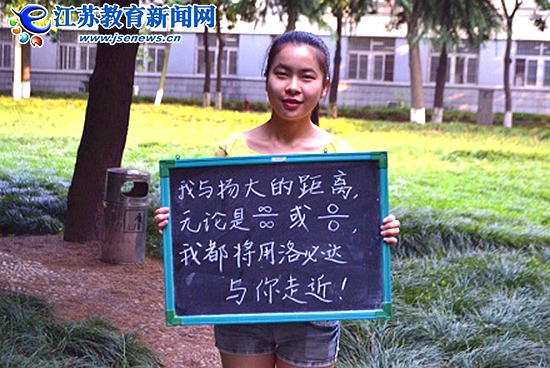 江苏教育新闻网
www.jsenews.cn
我与扬大的距离,
无论是 ∞/∞ 或 0/0,
我都将用洛必达
与你走近!